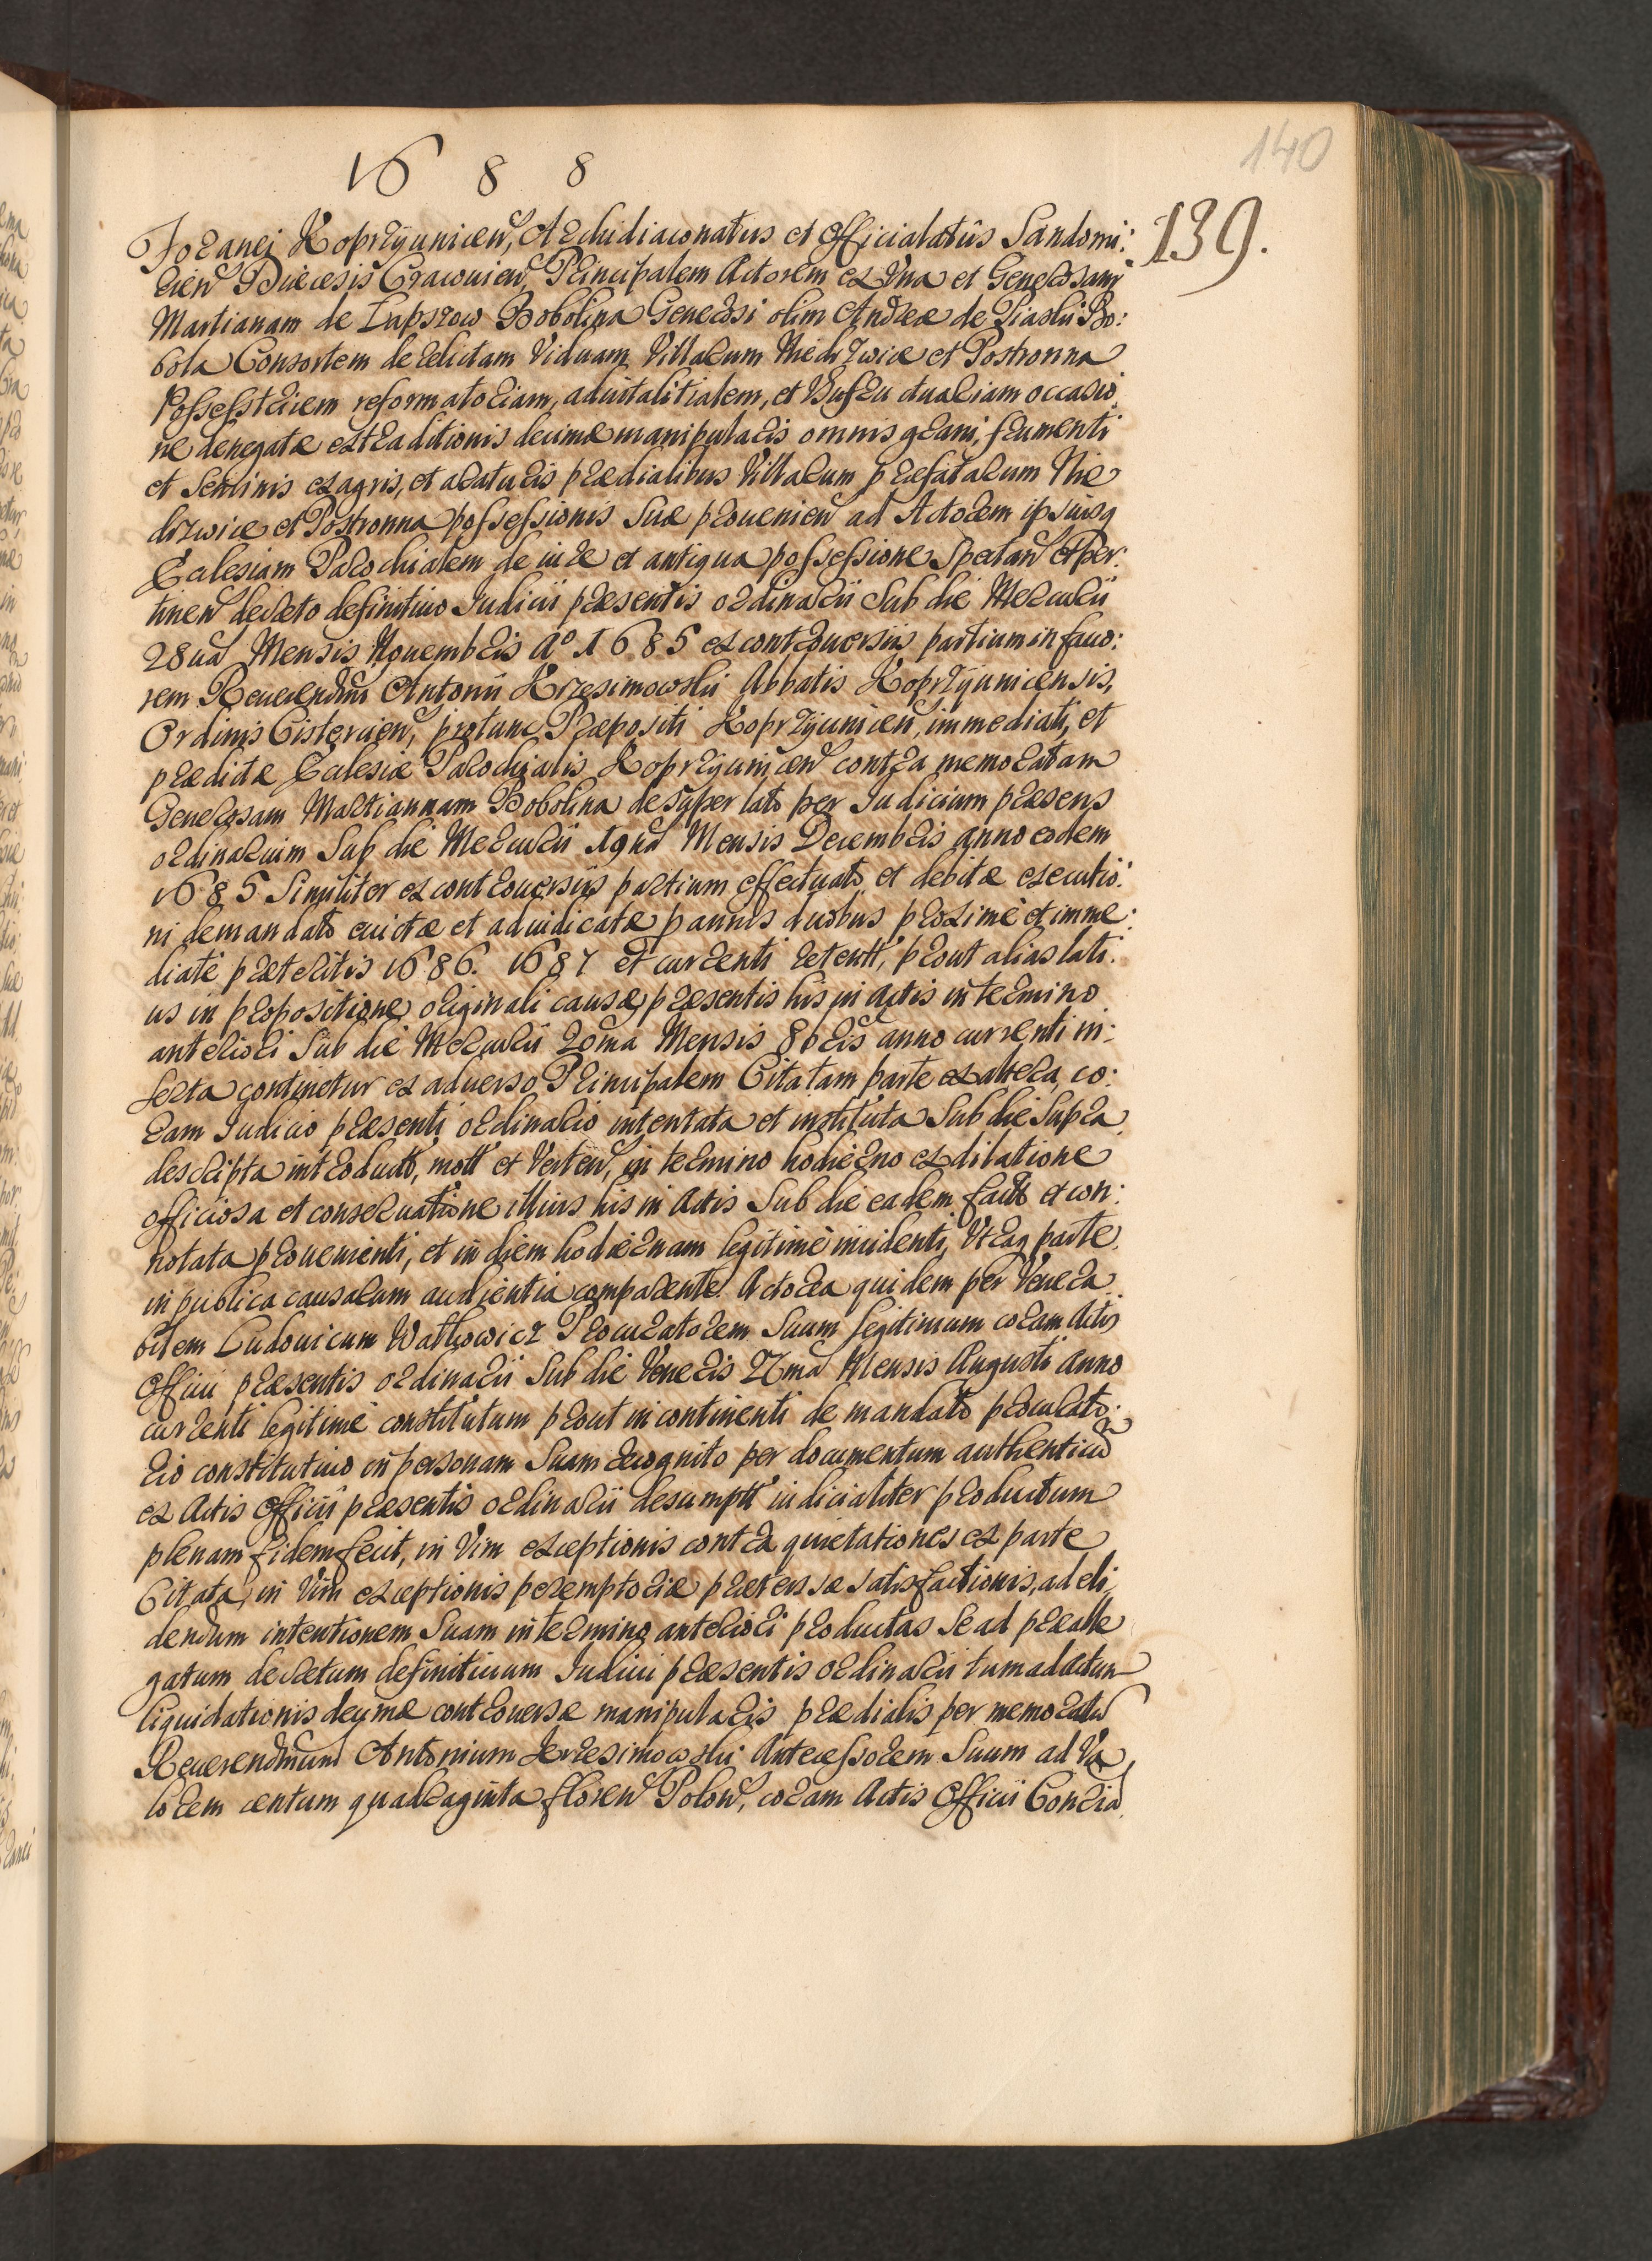 1688
140
139.
Foranei Koprzyunicen, Archidiaconatus et Officialatûs Sandomi:
rien Diæcesis Cracouien, Principalem Actorem ex Vna et Generosam
Martianam de Lapszow Bobolina Generosi olim Andreæ de Piaski Bo:
bola Consortem derelictam Viduam Villarum Niedrzwice et Postronna
Possestricem reformatoriam, aduitalitialem, et Vusfru ctuariam occasio
ne denegatæ extraditionis decimæ manipularis omnis grani, frumenti
et Seminis ex agris, et araturis prædialibus Villarum præfatarum Nie
drzwice et Postronna possessionis Suæ prouenien ad Actorem ipsiusq
Ecclesiam Parochialem de iure et antiqua possessione Spectan et per:
tinen decreto definitiuo Iudicii præsentis ordinarii Sub die Mercurii
28ua Mensis Nouembris Ao 1685 ex controuersiis partium in fauo:
rem Reuerendmi Antonii Krzesimowski Abbatis Koprzyunicensis,
Ordinis Cistercien, protunc Præpositi Koprzyunicen, immediati, et
prædictæ Ecclesiæ Parochialis Koprzyunicen contra memoratam
Generosam Martiannam Bobolina desuper lato per Iudicium præsens
ordinarium Sub die Mercurii 19na Mensis Decembris anno eodem
1685 Similiter ex controuersiis partium effectuato, et debitæ executio:
ni demandato euictæ et adiudicatæ p annis duobus proxime et imme:
diatè præteritis 1686. 1687 et currenti retentt, prout alias lati:
us in propositione originali causæ præsentis his in Actis in termino
anteriori Sub die Mercurii 20ma Mensis 8bris anno currenti in:
serta continetur ex aduerso Principalem Citatam parte ex altera, co:
ram Iudicio præsenti ordinario intentata et instituta Sub die Supra
descripta introductt, mott et Verten, in termino hodierno ex dilatione
officiosa et conseruatione illius his in Actis Sub die eadem factt et con:
notata prouenienti, et in diem hodiernam legitimè incidenti, Vtraq parte
in publica causarum audientia comparente. Actorea quidem per Venera
bilem Ludouicum Watkowicz Procuratorem Suum legitimum coram Actis
Officii præsentis ordinarii Sub die Veneris 27ma Mensis Augusti anno
currenti legitimè constitutum prout in continenti de mandato procurato:
rio constitutiuo in personam Suam recognito per documentum authenticu
ex Actis Officii præsentis ordinarii desumptt iudicialiter productum
plenam fidem fecit, in Vim exceptionis contra quietationes ex parte
Citata, in Vim exceptionis peremptoriæ prætensæ satisfactionis, ad eli
dendum intentionem Suam in termino anteriori productas Se ad prælle
gatum decretum definitiuum Iudicii præsentis ordinarii tum ad actum
liquidationis decimæ controuersæ manipularis prædialis per memoratu
Reuerendmum Antonium Krzesimowski Antecessorem Suum ad Va
lorem centum quadraginta floren Polon, coram Actis Officii Consta